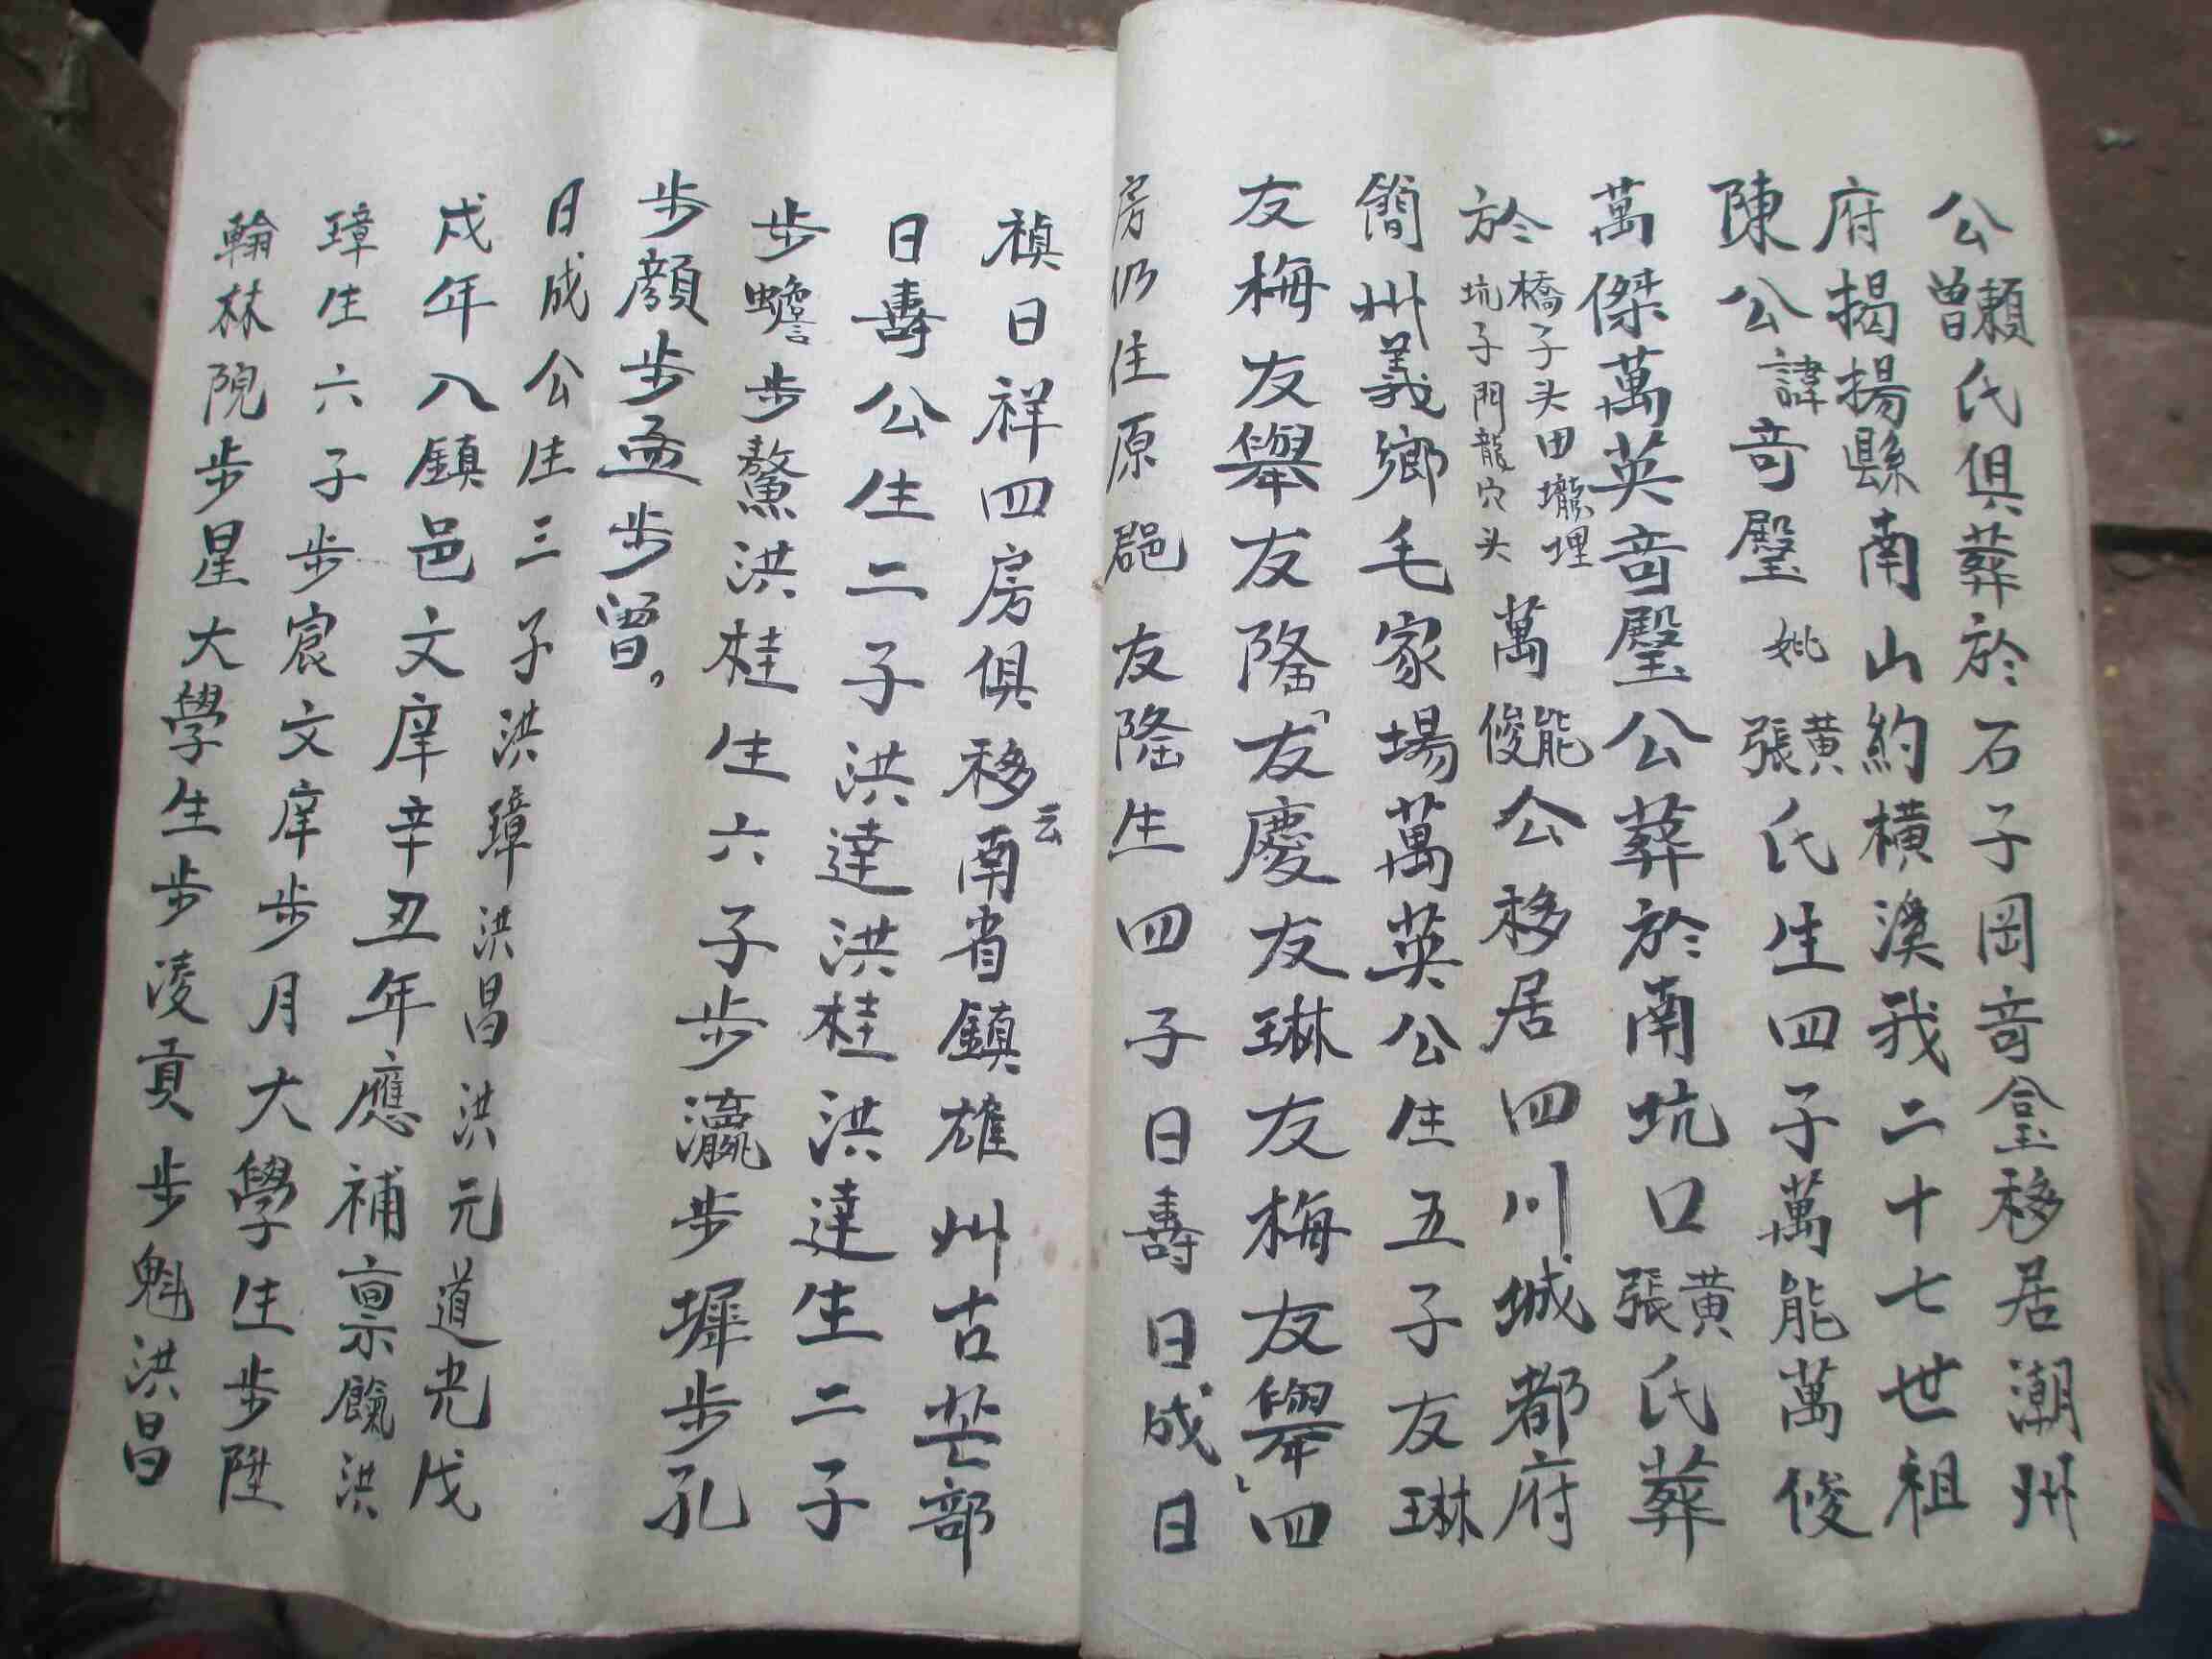 公賴曾氏俱葬於石子岡奇璧移居潮州
府揭揚縣南山約横溪我二十七世祖
陳公諱奇璧妣黄張氏生四子萬能萬俊
萬傑萬英奇璧公葬於南坑口黄張氏葬
於橋子头田壠埋坑子門龍穴头萬能俊公移居四川城都府
簡州義鄉毛家場萬英公生五子友琳
友梅友舉友隆友慶友琳友梅友舉四
房仍住原郡友隆生四子日壽日成日
禎日祥四房俱移云南省鎮雄州古芒部
日壽公生二子洪達洪桂洪達生二子
步蟾步鰲洪桂生六子步瀛步墀步孔
步顔步孟步曾。
日成公生三子洪璋洪昌洪元道光戊
戍年入鎮邑文庠辛丑年應補禀餼洪
璋生六子步宸文庠步月大學生步陞
翰林院步星大學生步凌貢步魁洪昌